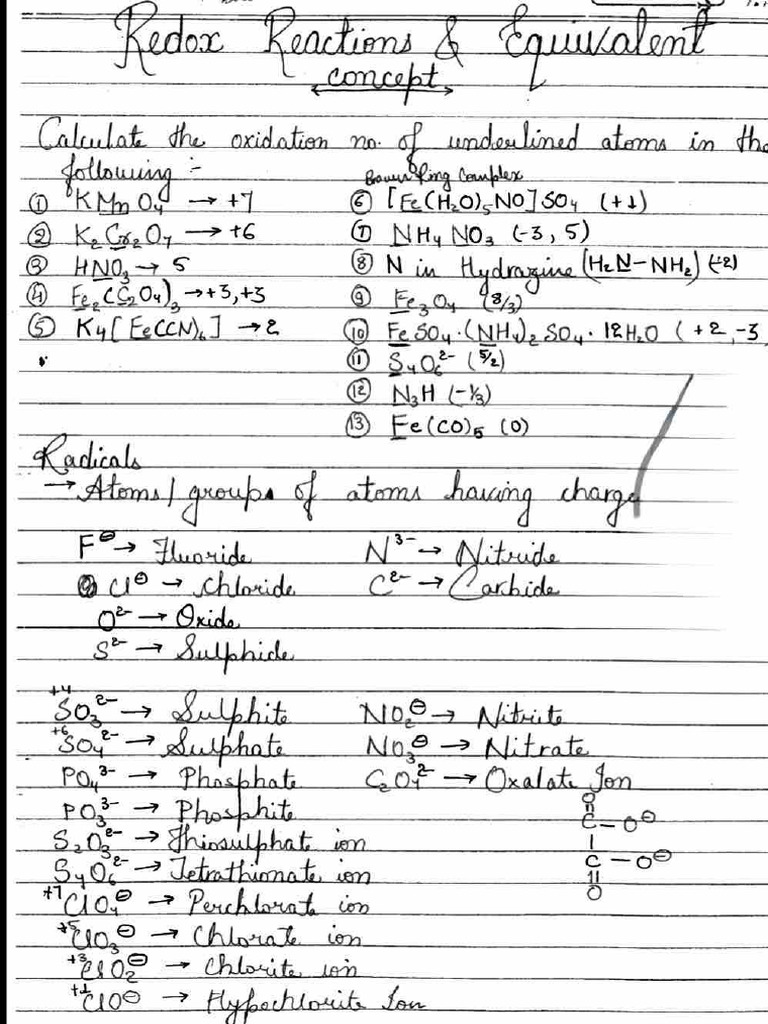 Redox Reactions & Equivalent
concept
Calculate the oxidation no. of underlined atoms in the
following :-
① KMnO₄ → +7
② K₂Cr₂O₇ → +6
③ HNO₃ → 5
④ Fe₂(C₂O₄)₃ → +3, +3
⑤ K₄[Fe(CN)₆] → 2
Brown Ring Complex
⑥ [Fe(H₂O)₅NO]SO₄ (+1)
⑦ NH₄NO₃ (-3, 5)
⑧ N in Hydrazine (H₂N–NH₂) (-2)
⑨ Fe₃O₄ (8/3)
⑩ FeSO₄·(NH₄)₂SO₄·12H₂O (+2, -3
⑪ S₄O₆²⁻ (5/2)
⑫ N₃H (-1/3)
⑬ Fe(CO)₅ (0)
Radicals
→ Atoms/groups of atoms having charge
F⊖ → Fluoride N³⁻ → Nitride
Cl⊖ → Chloride C²⁻ → Carbide
O²⁻ → Oxide
S²⁻ → Sulphide
+4 SO₃²⁻ → Sulphite NO₂⊖ → Nitrite
+6 SO₄²⁻ → Sulphate NO₃⊖ → Nitrate
PO₄³⁻ → Phosphate C₂O₄²⁻ → Oxalate Ion
PO₃³⁻ → Phosphite
S₂O₃²⁻ → Thiosulphate ion
S₄O₆²⁻ → Tetrathionate ion
+7 ClO₄⊖ → Perchlorate ion
+5 ClO₃⊖ → Chlorate ion
+3 ClO₂⊖ → Chlorite ion
+1 ClO⊖ → Hypochlorite Ion
O
C – O⊖
C – O⊖
O